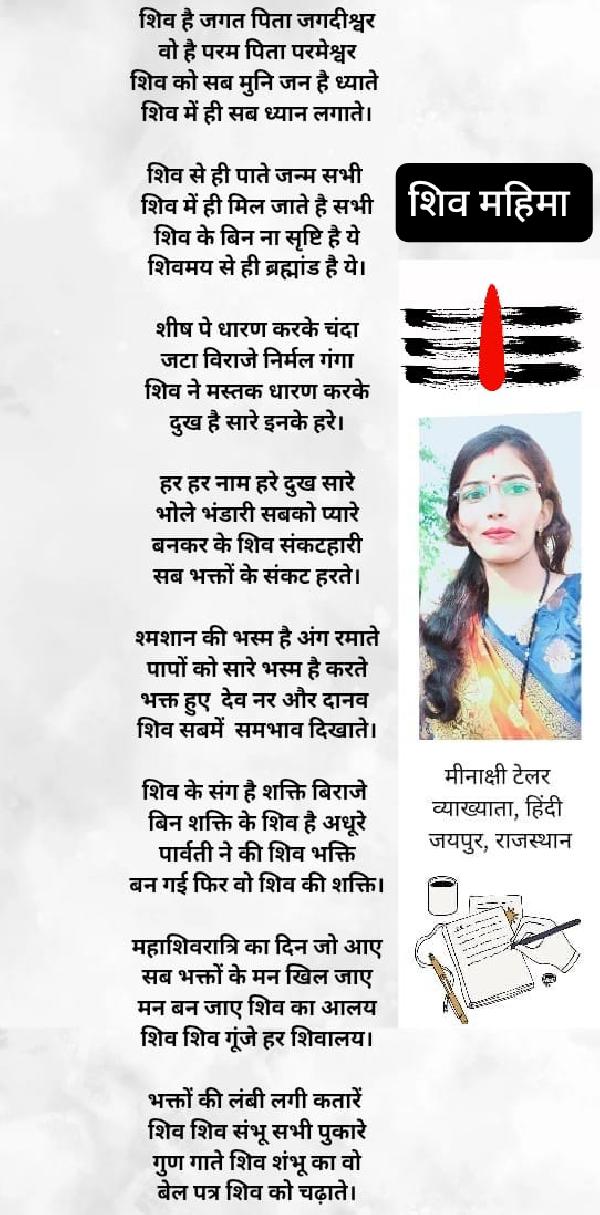 शिव है जगत पिता जगदीश्वर
वो है परम पिता परमेश्वर
शिव को सब मुनि जन है ध्याते
शिव में ही सब ध्यान लगाते।
शिव से ही पाते जन्म सभी
शिव में ही मिल जाते है सभी
शिव के बिन ना सृष्टि है ये
शिवमय से ही ब्रह्मांड है ये।
शीष पे धारण करके चंदा
जटा विराजे निर्मल गंगा
शिव ने मस्तक धारण करके
दुख है सारे इनके हरे।
हर हर नाम हरे दुख सारे
भोले भंडारी सबको प्यारे
बनकर के शिव संकटहारी
सब भक्तों के संकट हरते।
श्मशान की भस्म है अंग रमाते
पापों को सारे भस्म है करते
भक्त हुए देव नर और दानव
शिव सबमें समभाव दिखाते।
शिव के संग है शक्ति बिराजे
बिन शक्ति के शिव है अधूरे
पार्वती ने की शिव भक्ति
बन गई फिर वो शिव की शक्ति।
महाशिवरात्रि का दिन जो आए
सब भक्तों के मन खिल जाए
मन बन जाए शिव का आलय
शिव शिव गूंजे हर शिवालय।
भक्तों की लंबी लगी कतारें
शिव शिव संभू सभी पुकारे
गुण गाते शिव शंभू का वो
बेल पत्र शिव को चढ़ाते।
शिव महिमा
मीनाक्षी टेलर
व्याख्याता, हिंदी
जयपुर, राजस्थान